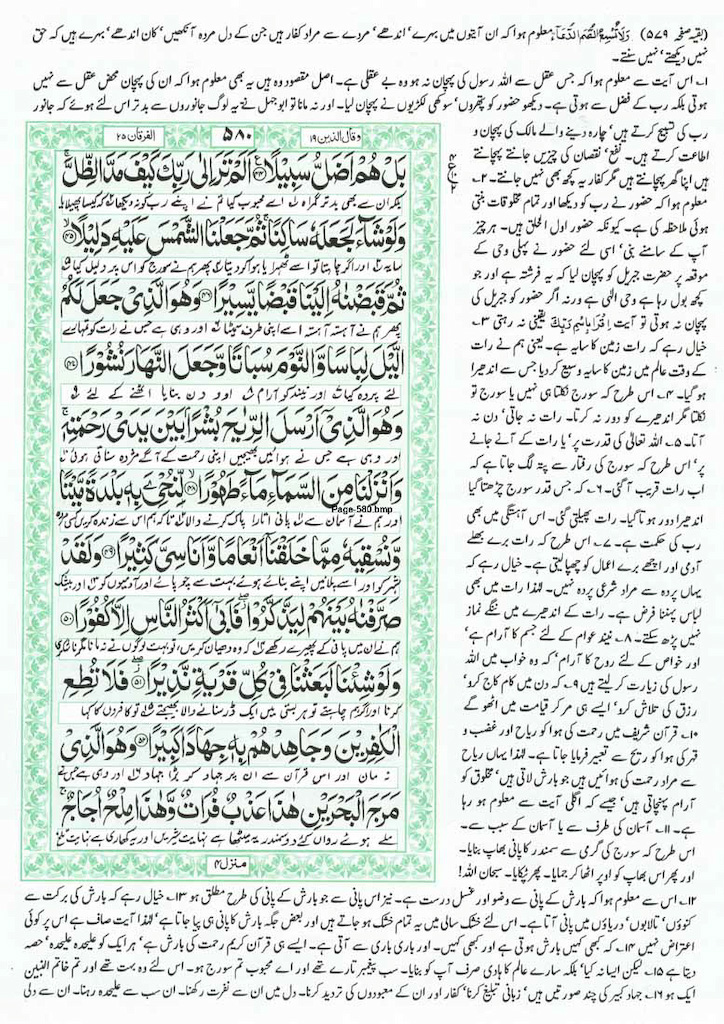 (بقیہ صفحہ ۵۷۹) وَلَا تُسْمِعُ الصُّمَّ الدُّعَآءَ معلوم ہوا کہ ان آیتوں میں بہرے' اندھے' مردے سے مراد کفار ہیں جن کے دل مردہ آنکھیں' کان اندھے' بہرے ہیں کہ حق
نہیں دیکھتے' نہیں سنتے۔
۱۔ اس آیت سے معلوم ہوا کہ جس عقل سے اللہ رسول کی پہچان نہ ہو وہ بے عقلی ہے۔ اصل مقصود وہ ہیں یہ بھی معلوم ہوا کہ ان کی پہچان محض عقل سے نہیں
ہوتی بلکہ رب کے فضل سے ہوتی ہے۔ دیکھو حضور کو پتھروں' سوکھی لکڑیوں نے پہچان لیا۔ اور نہ مانا تو ابوجہل نے یہ لوگ جانوروں سے بدتر اس لئے ہوئے کہ جانور
رب کی تسبیح کرتے ہیں' چارہ دینے والے مالک کی پہچان و
اطاعت کرتے ہیں۔ نفع' نقصان کی چیزیں جانتے پہچانتے
ہیں اپنا گھر پہچانتے ہیں مگر کفار یہ کچھ بھی نہیں جانتے۔ ۲۔
معلوم ہوا کہ حضور نے رب کو دیکھا اور تمام مخلوقات بنتی
ہوئی ملاحظہ کی ہے۔ کیونکہ حضور اول الخلق ہیں۔ ہر چیز
آپ کے سامنے بنی' اسی لئے حضور نے پہلی وحی کے
موقعہ پر حضرت جبریل کو پہچان لیا کہ یہ فرشتہ ہے اور جو
کچھ بول رہا ہے وحی الٰہی ہے ورنہ اگر حضور کو جبریل کی
پہچان نہ ہوتی تو آیت اِقْرَاْ بِاسْمِ رَبِّكَ یقینی نہ رہتی ۳۔
خیال رہے کہ رات زمین کا سایہ ہے۔ یعنی ہم نے رات
کے وقت عالم میں زمین کا سایہ وسیع کر دیا جس سے اندھیرا
ہو گیا۔ ۴۔ اس طرح کہ سورج نکلتا ہی نہیں یا سورج تو
نکلتا مگر اندھیرے کو دور نہ کرتا۔ رات نہ جاتی' دن نہ
آتا۔ ۵۔ اللہ تعالیٰ کی قدرت پر' یا رات کے آنے جانے
پر' اس طرح کہ سورج کی رفتار سے پتہ لگ جاتا ہے کہ
اب رات قریب آ گئی۔ ۶۔ کہ جس قدر سورج چڑھتا گیا
اندھیرا دور ہوتا گیا۔ رات پھیلتی گئی۔ اس آہستگی میں بھی
رب کی حکمت ہے۔ ۷۔ اس طرح کہ رات برے بھلے
آدمی اور اچھے برے اعمال کو چھپا لیتی ہے۔ خیال رہے کہ
یہاں پردہ سے مراد شرعی پردہ نہیں۔ لہٰذا رات میں بھی
لباس پہننا فرض ہے۔ رات کے اندھیرے میں ننگے نماز
نہیں پڑھ سکتے۔ ۸۔ نیند عوام کے لئے جسم کا آرام ہے'
اور خواص کے لئے روح کا آرام' کہ وہ خواب میں اللہ
رسول کی زیارت کر لیتے ہیں ۹۔ کہ دن میں کام کاج کرو'
رزق کی تلاش کرو' ایسے ہی مر کر قیامت میں اٹھو گے
۱۰۔ قرآن شریف میں رحمت کی ہوا کو ریاح اور غضب و
قہر کی ہوا کو ریح سے تعبیر فرمایا جاتا ہے۔ لہٰذا یہاں ریاح
سے مراد رحمت کی ہوائیں ہیں جو بارش لاتی ہیں' مخلوق کو
آرام پہنچاتی ہیں' جیسے کہ اگلی آیت سے معلوم ہو رہا
ہے۔ ۱۱۔ آسمان کی طرف سے یا آسمان کے سبب سے۔
اس طرح کہ سورج کی گرمی سے سمندر کا پانی بھاپ بنایا۔
اور پھر اس بھاپ کو اوپر اٹھا کر جمایا۔ پھر ٹپکایا۔ سبحان اللہ!
وقال الذین ۱۹
۵۸۰
الفرقان ۲۵
بَلْ هُمْ اَضَلُّ سَبِیْلًا ﴿۴۴﴾ اَلَمْ تَرَ اِلٰی رَبِّكَ كَیْفَ مَدَّ الظِّلَّ
بلکہ ان سے بھی بدتر گمراہ اے محبوب کیا تم نے اپنے رب کو نہ دیکھا کہ کیسا پھیلایا
وَلَوْ شَآءَ لَجَعَلَهٗ سَاكِنًا ثُمَّ جَعَلْنَا الشَّمْسَ عَلَیْهِ دَلِیْلًا ﴿۴۵﴾
سایہ اور اگر چاہتا تو اسے ٹھہرایا ہوا کر دیتا پھر ہم نے سورج کو اس پر دلیل کیا
ثُمَّ قَبَضْنٰهُ اِلَیْنَا قَبْضًا یَّسِیْرًا ﴿۴۶﴾ وَهُوَ الَّذِیْ جَعَلَ لَكُمُ
پھر ہم نے آہستہ آہستہ اسے اپنی طرف سمیٹا اور وہی ہے جس نے رات کو تمہارے
الَّیْلَ لِبَاسًا وَّالنَّوْمَ سُبَاتًا وَّجَعَلَ النَّهَارَ نُشُوْرًا ﴿۴۷﴾
لئے پردہ کیا اور نیند کو آرام اور دن بنایا اٹھنے کے لئے
وَهُوَ الَّذِیْۤ اَرْسَلَ الرِّیٰحَ بُشْرًۢا بَیْنَ یَدَیْ رَحْمَتِهٖ
اور وہی ہے جس نے ہوائیں بھیجیں اپنی رحمت کے آگے مژدہ سناتی ہوئی
وَاَنْزَلْنَا مِنَ السَّمَآءِ مَآءً طَهُوْرًا ﴿۴۸﴾ لِّنُحْیَِۧ بِهٖ بَلْدَةً مَّیْتًا
Page-580.bmp
اور ہم نے آسمان سے پانی اتارا پاک کرنے والا تاکہ ہم اس سے زندہ کریں کسی مردہ
وَّنُسْقِیَهٗ مِمَّا خَلَقْنَاۤ اَنْعَامًا وَّاَنَاسِیَّ كَثِیْرًا ﴿۴۹﴾ وَلَقَدْ
شہر کو اور اسے پلائیں اپنے بنائے ہوئے بہت سے چوپائے اور آدمیوں کو اور بیشک
صَرَّفْنٰهُ بَیْنَهُمْ لِیَذَّكَّرُوْا فَاَبٰۤی اَكْثَرُ النَّاسِ اِلَّا كُفُوْرًا ﴿۵۰﴾
ہم نے ان میں پانی کے پھیرے رکھے کہ وہ دھیان کریں، تو بہت لوگوں نے نہ مانا مگر ناشکری
وَلَوْ شِئْنَا لَبَعَثْنَا فِیْ كُلِّ قَرْیَةٍ نَّذِیْرًا ﴿۵۱﴾ فَلَا تُطِعِ
کرنا اور اگر ہم چاہتے تو ہر بستی میں ایک ڈر سنانے والا بھیجتے تو کافروں کا کہا
الْكٰفِرِیْنَ وَجَاهِدْهُمْ بِهٖ جِهَادًا كَبِیْرًا ﴿۵۲﴾ وَهُوَ الَّذِیْ
نہ مان اور اس قرآن سے ان پر جہاد کر بڑا جہاد اور وہی ہے جس نے
مَرَجَ الْبَحْرَیْنِ هٰذَا عَذْبٌ فُرَاتٌ وَّهٰذَا مِلْحٌ اُجَاجٌ
ملے ہوئے رواں کئے دو سمندر یہ میٹھا ہے نہایت شیریں اور یہ کھاری ہے نہایت تلخ
منزل ۴
۱۲۔ اس سے معلوم ہوا کہ بارش کے پانی سے وضو اور غسل درست ہے۔ نیز اس پانی سے جو بارش کے پانی کی طرح مطلق ہو ۱۳۔ خیال رہے کہ بارش کی برکت سے
کنوؤں' تالابوں' دریاؤں میں پانی آتا ہے۔ اس لئے خشک سالی میں یہ تمام خشک ہو جاتے ہیں اور بعض جگہ بارش کا پانی ہی پیا جاتا ہے' لہٰذا آیت صاف ہے اس پر کوئی
اعتراض نہیں ۱۴۔ کہ کبھی کہیں بارش ہوتی ہے اور کبھی کہیں۔ اور باری باری سے آتی ہے۔ ایسے ہی قرآن کریم رحمت کی بارش ہے' ہر ایک کو علیحدہ علیحدہ' حصہ
دیتا ہے ۱۵۔ لیکن ایسا نہ کیا' بلکہ سارے عالم کا ہادی صرف آپ کو بنایا۔ سب پیغمبر تارے تھے اور اے محبوب تم سورج ہو۔ اس لئے وہ بہت تھے اور تم خاتم النبین
ایک ہو ۱۶۔ جہاد کبیر کی چند صورتیں ہیں' زبانی تبلیغ کرنا' کفار اور ان کے معبودوں کی تردید کرنا۔ دل میں ان سے نفرت رکھنا۔ ان سب سے علیحدہ رہنا۔ ان سے دلی